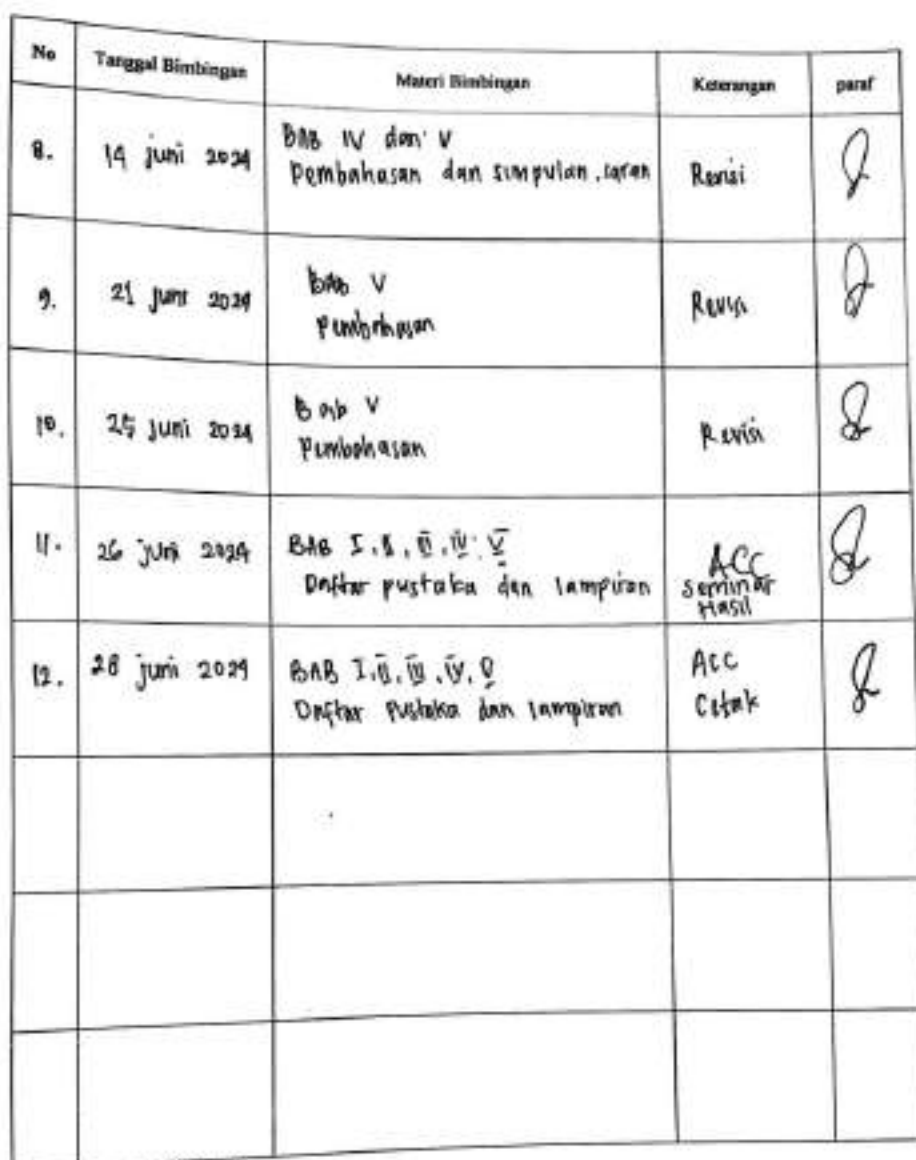 No Tanggal Bimbingan Materi Bimbingan Keterangan paraf
8. 14 juni 2024 BAB IV dan V
Pembahasan dan simpulan, saran Revisi
9. 21 juni 2024 BAB V
Pembahasan Revisi
10. 25 juni 2024 Bab V
Pembahasan Revisi
11. 26 juni 2024 BAB I, II, III, IV, V
Daftar pustaka dan lampiran ACC
Seminar
Hasil
12. 28 juni 2024 BAB I, II, III, IV, V
Daftar Pustaka dan lampiran ACC
Cetak